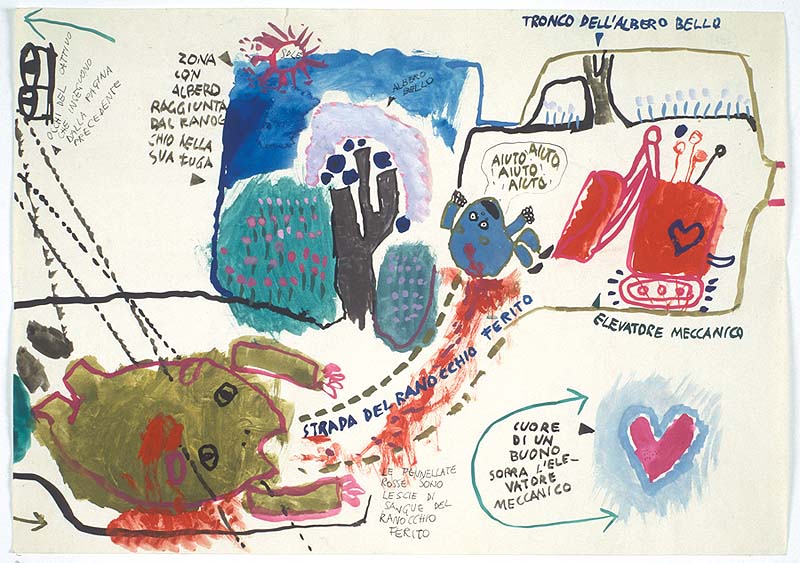 OCCHI DEL CATTIVO
CHE INSEGUONO
DALLA PAGINA
PRECEDENTE
ZONA
CON
ALBERO
RAGGIUNTA
DAL RANOC
CHIO NELLA
SUA FUGA
SOLE
ALBERO
BELLO
TRONCO DELL'ALBERO BELLO
AIUTO AIUTO
AIUTO
AIUTO
ELEVATORE MECCANICO
STRADA DEL RANOCCHIO FERITO
LE PENNELLATE
ROSSE SONO
LE SCIE DI
SANGUE DEL
RANOCCHIO
FERITO
CUORE
DI UN
BUONO
SOPRA L'ELE-
VATORE
MECCANICO